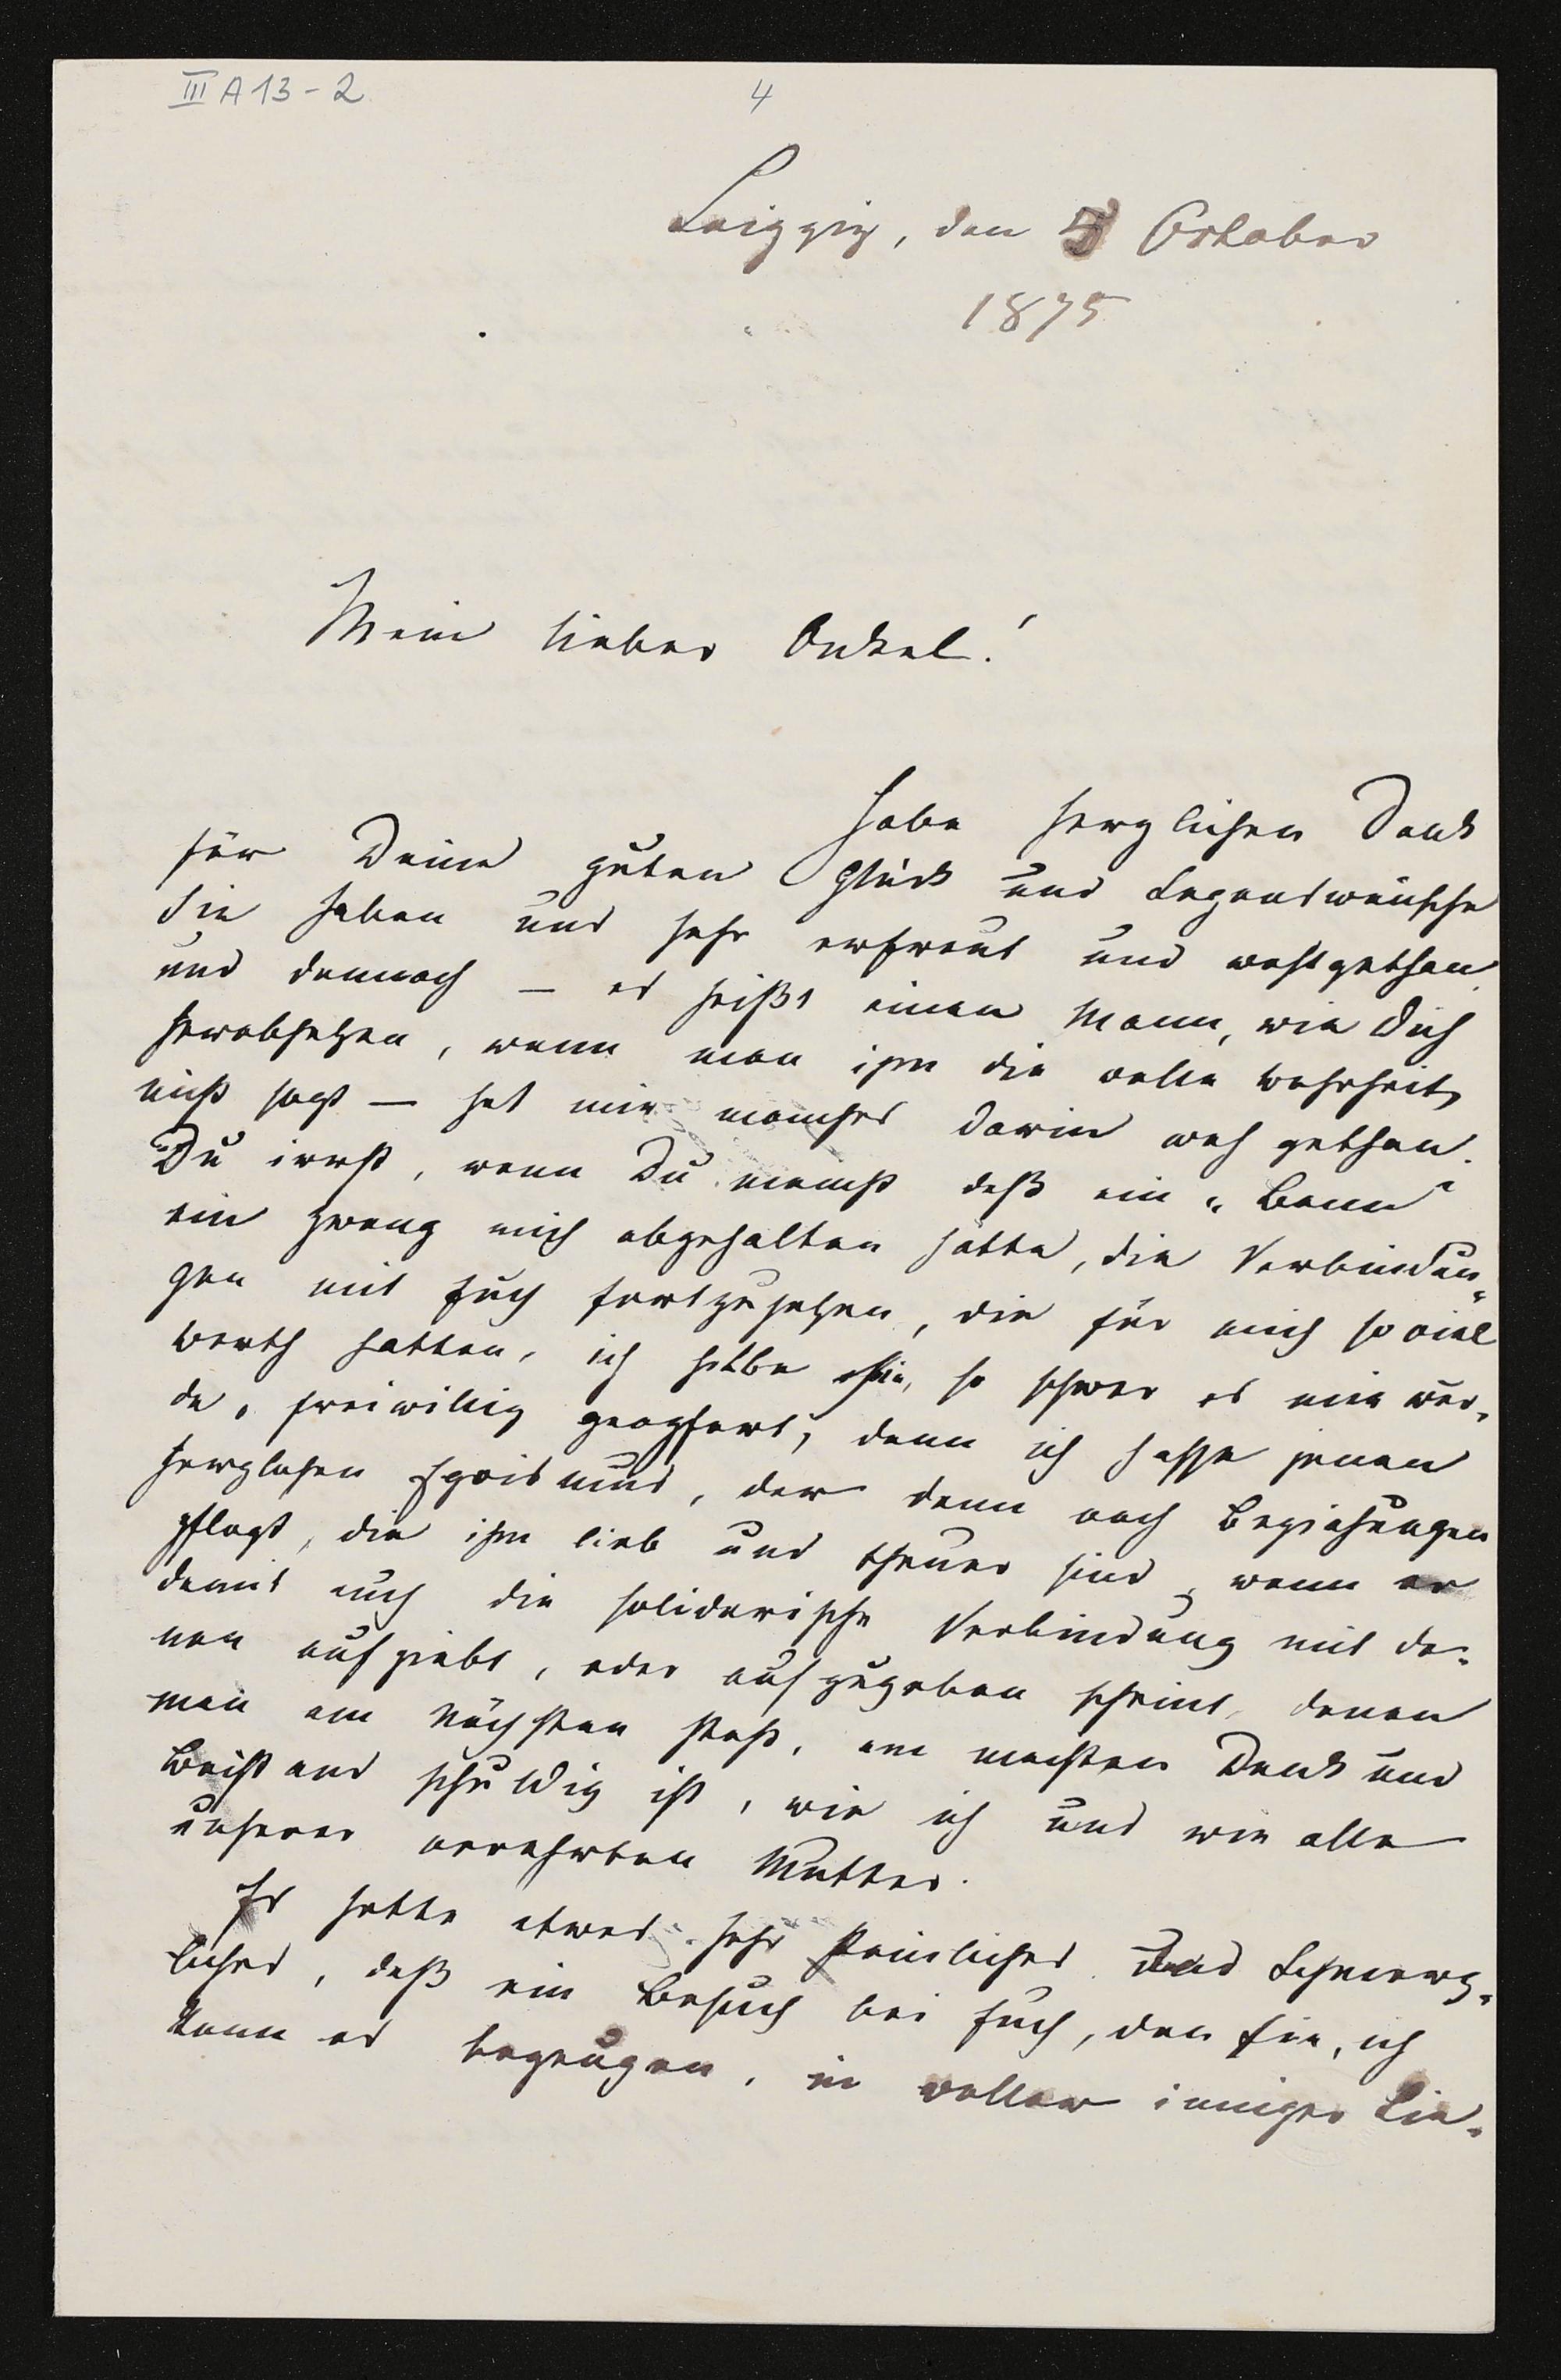 III A 13-2
4
Leipzig, den 5 October
1875
Mein lieber Onkel!
Habe herzlichen Dank
für Deine guten Glück und Segenswünsche
Sie haben uns sehr erfreut und wohlgethan,
und dennoch — es hieße einen Mann, wie Dich
herabsetzen, wenn man ihm die volle Wahrheit
nicht sagt — hat mir manches darin weh gethan.
Du irrst, wenn Du meinst daß ein „Bann"
ein Zwang mich abgehalten hätte, die Verbindun-
gen mit Euch fortzusetzen, die für mich so viel
Werth hatten, ich habe sie, so schwer es mir wur-
de, freiwillig geopfert, denn ich hasse jenen
herzlosen Egoismus, der dann noch Beziehungen
pflegt, die ihm lieb und theuer sind, wenn er
damit auch die solidarische Verbindung mit de-
nen aufgiebt, oder aufzugeben scheint, denen
man am nächsten steht, am meisten Dank und
Beistand schuldig ist, wie ich und wir alle
unserer verehrten Mutter.
Es hatte etwas sehr Peinliches und Schmerz-
liches, daß ein Besuch bei Euch, den sie, ich
kann es bezeugen, in voller inniger Lie-